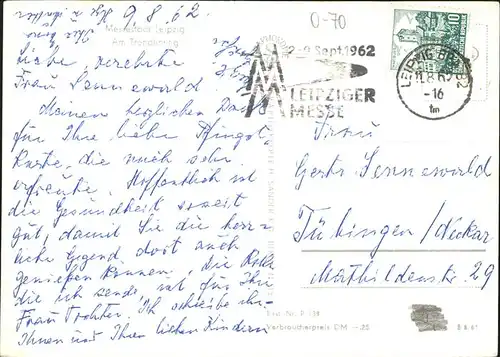 9/8.62
0-70
Messestadt Leipzig
Am Trendelring
Liebe, verehrte
Frau Sennewald
Meinen herzlichen Dank
für Ihre liebe Pfingst-
karte, die mich sehr
erfreute. Hoffentlich ist
die Gesundheit soweit
gut, damit Sie die herr-
liche Gegend dort auch
genießen können. Die Karte
die ich sende, ist für Ihre
Frau Tochter. Ich schreibe
Ihnen und Ihren lieben Kindern
2-9 Sept. 1962
LEIPZIGER
MESSE
10
LEIPZIG
-16
tm
Frau
Gertr. Sennewald
Tübingen/Neckar
Mathildenstr. 29
Best.-Nr. P 128
Verbraucherpreis DM -,25